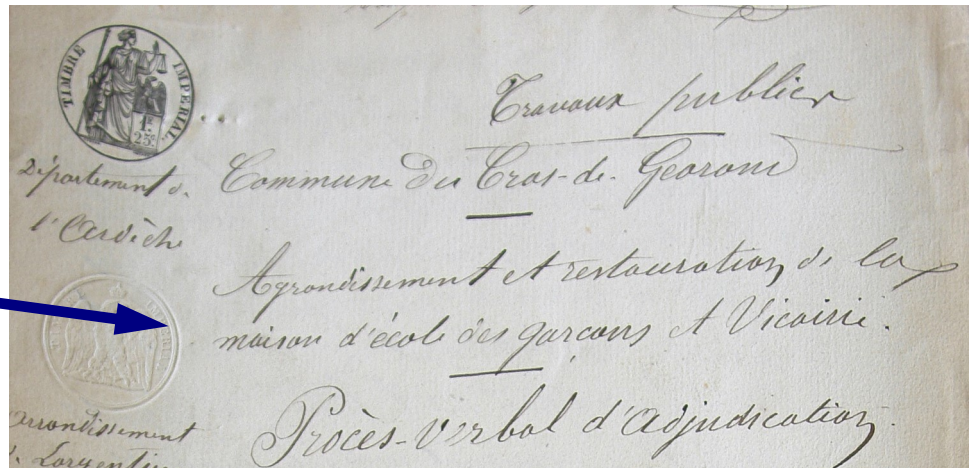 TIMBRE IMPERIAL
1F.
25c.
Travaux publics
Département de
l'Ardèche
Commune du Cros-de-Géorand
Agrandissement et restauration de la
maison d'école des garçons et Vicairie.
arrondissement
de Largentière
Procès-verbal d'adjudication